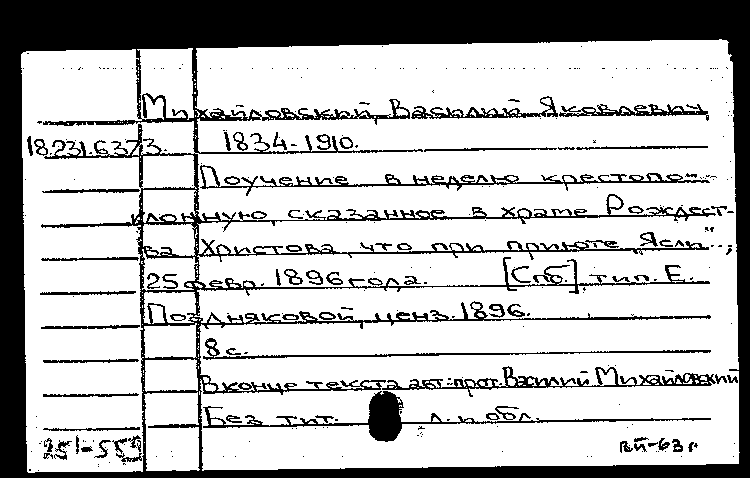 Михайловский, Василий Яковлевич,
18.231.6.373. 1834-1910.
Поучение в неделю крестопо-
клонную, сказанное в храме Рождест-
ва Христова, что при приюте „Ясли",
25 февр. 1896 года. [Спб.], тип. Е.
Поздняковой, ценз. 1896.
8 с.
В конце текста авт.: прот. Василий Михайловский
Без тит. л. и обл.
251-559
вп-63 г